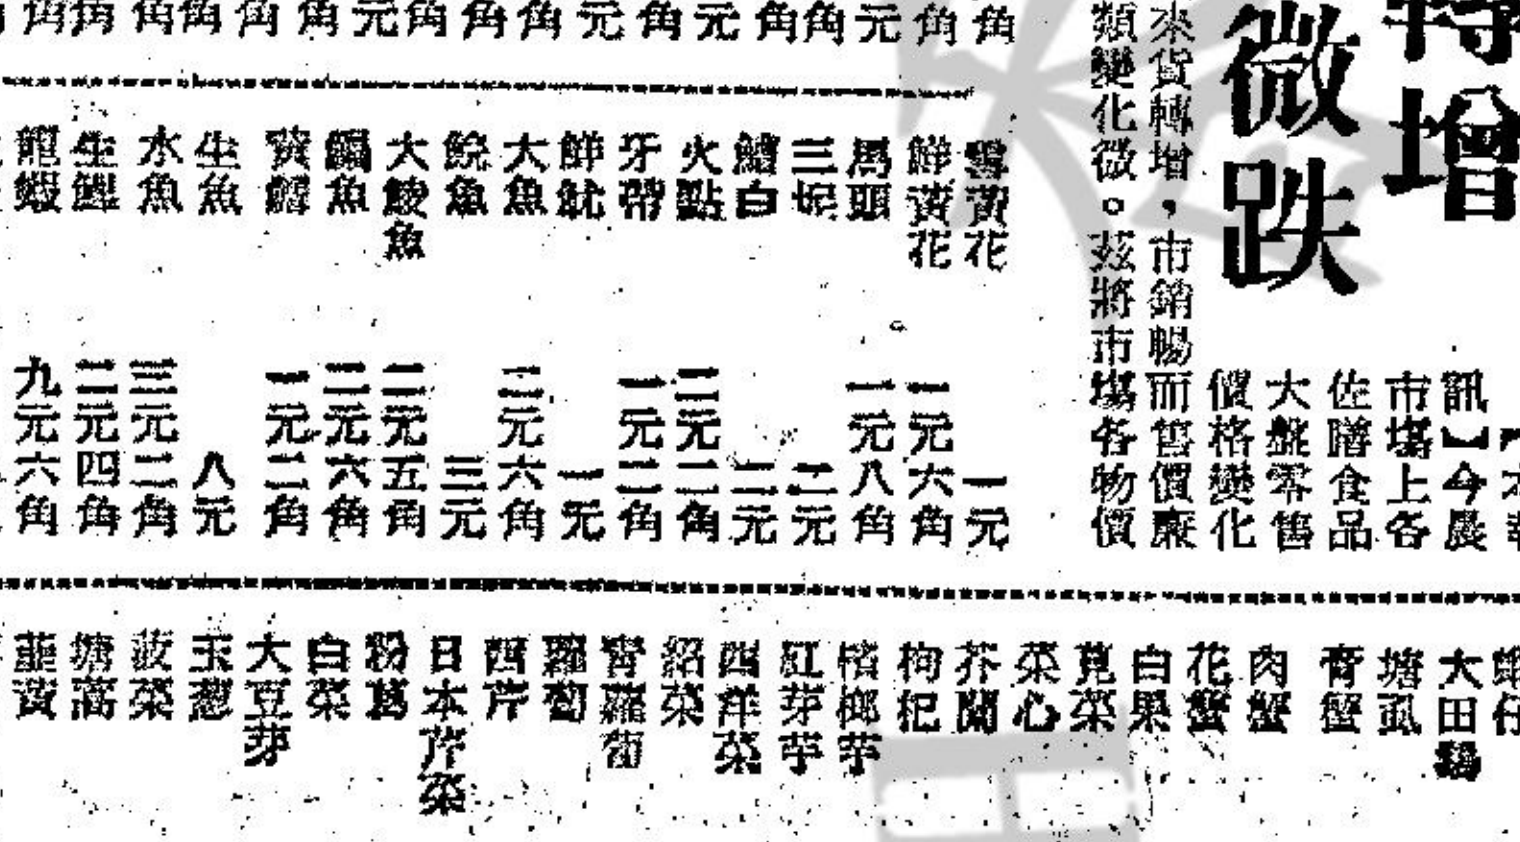 轉增
微跌
訊】今晨
市場上各
佐膳食品
大盤零售
價格變化
來貨轉增，市銷暢而售價廉
類變化微。茲將市場各物價
角
角
元
角
角
元
角
元
角
角
角
元
角
角
角
角
角
角
雪黃花 一元
鮮黃花 一元六角
馬頭 一元八角
三 二元
鱠白 二元
火點 二元二角
牙帶 一元二角
鮮魷 一元
大魚 二元六角
鯇魚 三元
大鯪魚 二元五角
魚 二元六角
一元二角
生魚 八元
水魚 三元二角
生鯉 二元四角
龍蝦 九元六角
大田
塘虱
膏蟹
肉蟹
花蟹
白果
莧菜
菜心
芥蘭
枸杞
檳榔芋
紅芽芋
西洋菜
紹菜
青蘿蔔
蘿蔔
西芹
日本芹菜
粉葛
白菜
大豆芽
玉葱
菠菜
塘蒿
韮黃